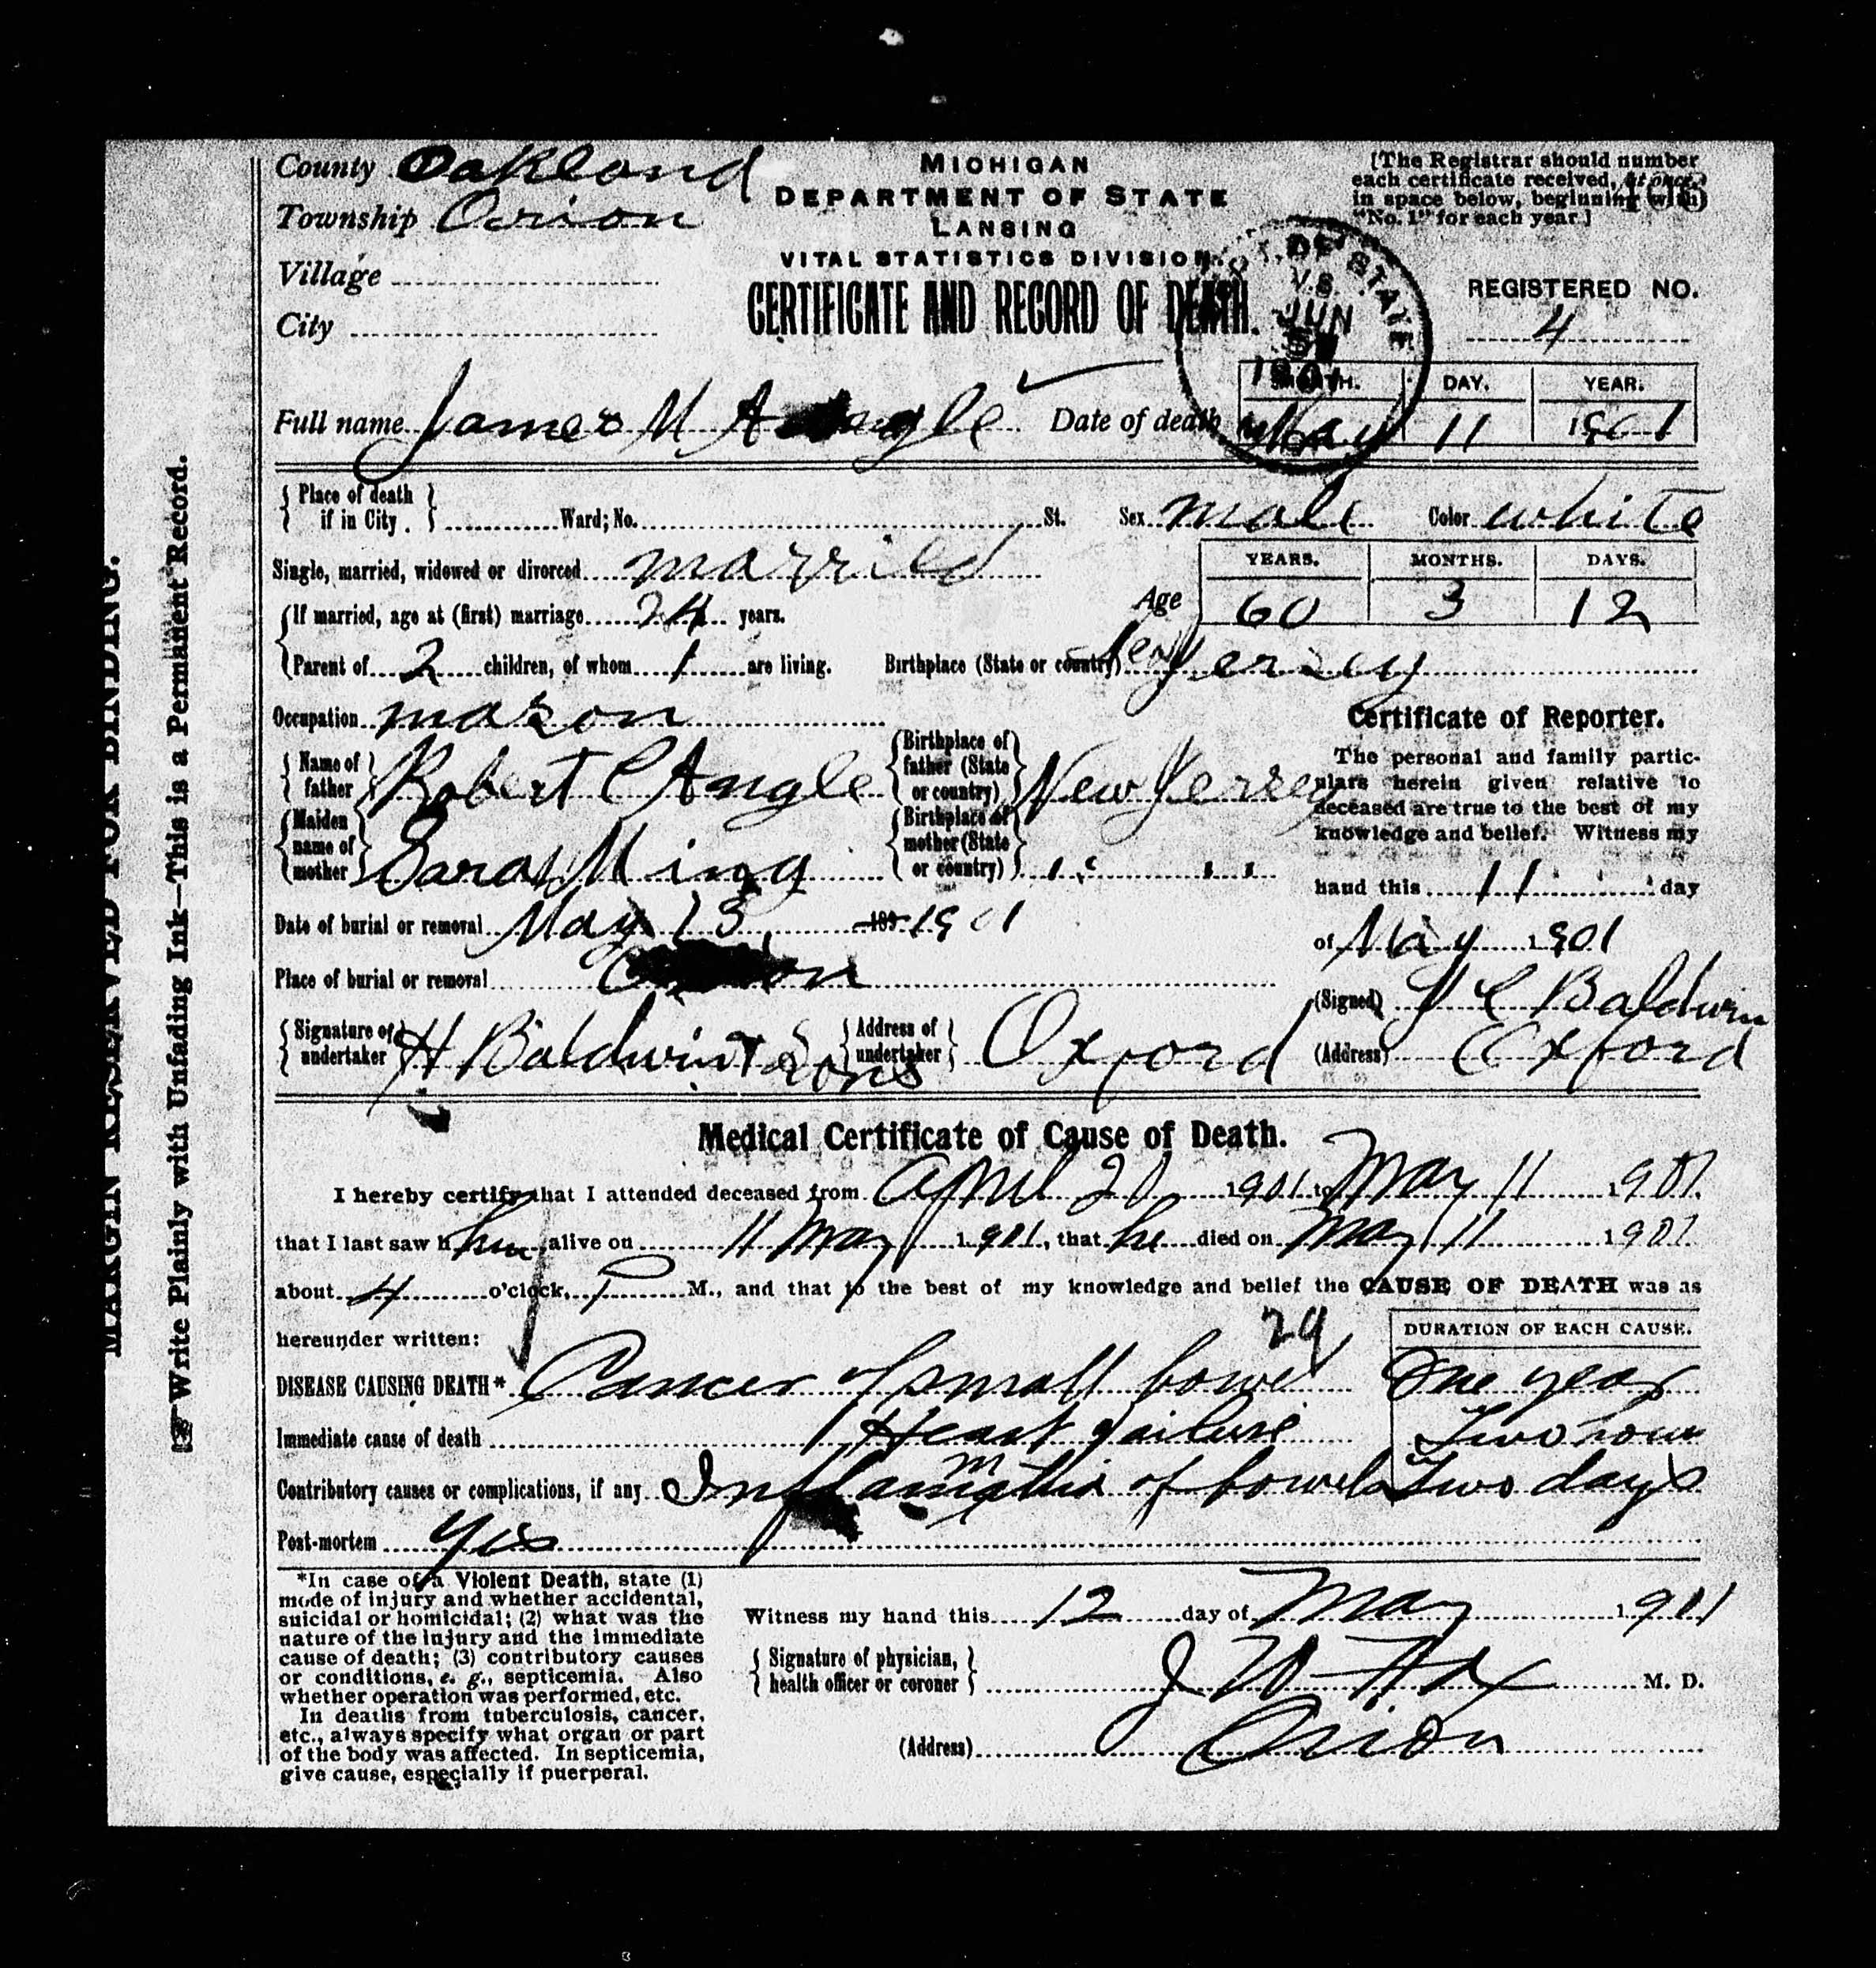 County Oakland
Township Orion
Village
City
MICHIGAN
DEPARTMENT OF STATE
LANSING
VITAL STATISTICS DIVISION
CERTIFICATE AND RECORD OF DEATH.
[The Registrar should number
each certificate received, at once,
in space below, beginning with
"No. 1" for each year.]
DEPT. OF STATE
V.S.
JUN
1901
REGISTERED NO.
4
Full name James M Angle Date of death
MONTH. DAY. YEAR.
May 11 1901
{Place of death if in City.} Ward; No. St. Sex male Color white
Single, married, widowed or divorced married
Age
YEARS. MONTHS. DAYS.
60 3 12
{If married, age at (first) marriage 24 years.
Parent of 2 children, of whom 1 are living. Birthplace (State or country) New Jersey
Occupation mason
{Name of father} Robert C Angle {Birthplace of father (State or country)} New Jersey
{Maiden name of mother} Sarah Ming {Birthplace of mother (State or country)} " "
Date of burial or removal May 13, 189 1901
Place of burial or removal
{Signature of undertaker} H Baldwin & Sons {Address of undertaker} Oxford
Certificate of Reporter.
The personal and family partic-
ulars herein given relative to
deceased are true to the best of my
knowledge and belief. Witness my
hand this 11 day
of May 1901
(Signed) Baldwin
(Address) Oxford
Medical Certificate of Cause of Death.
I hereby certify that I attended deceased from April 20 1901 to May 11 1901.
that I last saw h him alive on 11 May 1901, that he died on May 11 1901
about 4 o'clock, P M., and that to the best of my knowledge and belief the CAUSE OF DEATH was as
hereunder written:
29
DURATION OF EACH CAUSE.
DISEASE CAUSING DEATH* Cancer of small bowel One year
Immediate cause of death Heart failure Two hours
Contributory causes or complications, if any Inflammation of bowels Two days
Post-mortem Yes
*In case of a Violent Death, state (1)
mode of injury and whether accidental,
suicidal or homicidal; (2) what was the
nature of the injury and the immediate
cause of death; (3) contributory causes
or conditions, e. g., septicemia. Also
whether operation was performed, etc.
In deaths from tuberculosis, cancer,
etc., always specify what organ or part
of the body was affected. In septicemia,
give cause, especially if puerperal.
Witness my hand this 12 day of May 1901
{Signature of physician, health officer or coroner} J W M. D.
(Address) Orion
MARGIN RESERVED FOR BINDING.
Write Plainly with Unfading Ink—This is a Permanent Record.